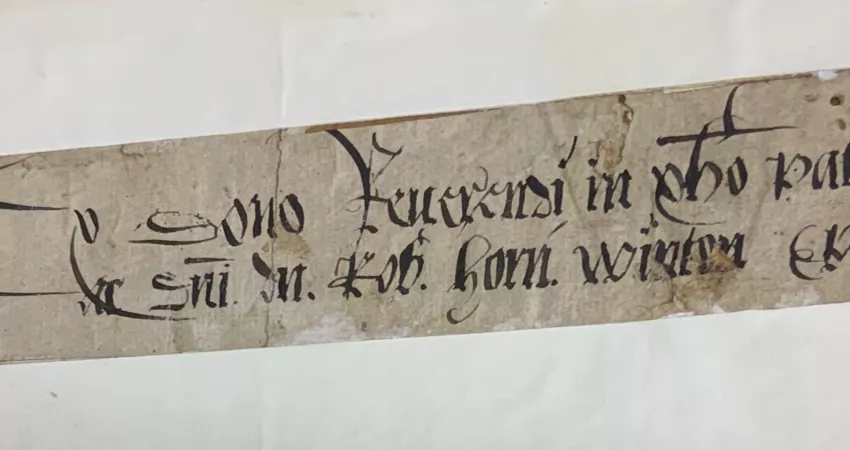 Ex Dono Reuerendi in xpo̅ Pat
ac Dn̄i. dn. Rob. horn. winton Ep